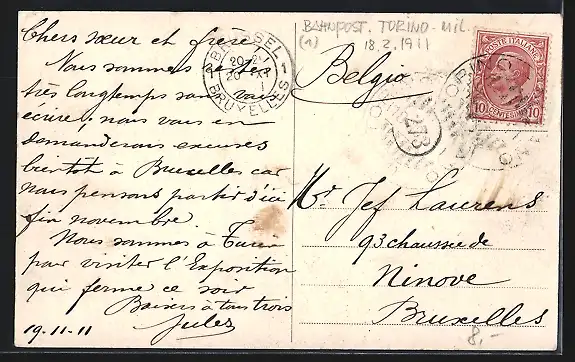 Chers sœur et frère
Nous sommes
très longtemps sans vous
écrire, nous vous en
demanderons excuses
bientôt à Bruxelles car
nous pensons partir d'ici
fin novembre.
Nous sommes à Turin
pour visiter l'Exposition
qui ferme ce soir
Baisers à tous trois
Jules
19-11-11
BRUSSEL
BRUXELLES
BAHNPOST. TORINO-MIL
(1) 18.2.1911
Belgio
273
POSTE ITALIANE
10 CENTESIMI 10
Mr Jef Laurens
93 chaussée de
Ninove
Bruxelles
8,-